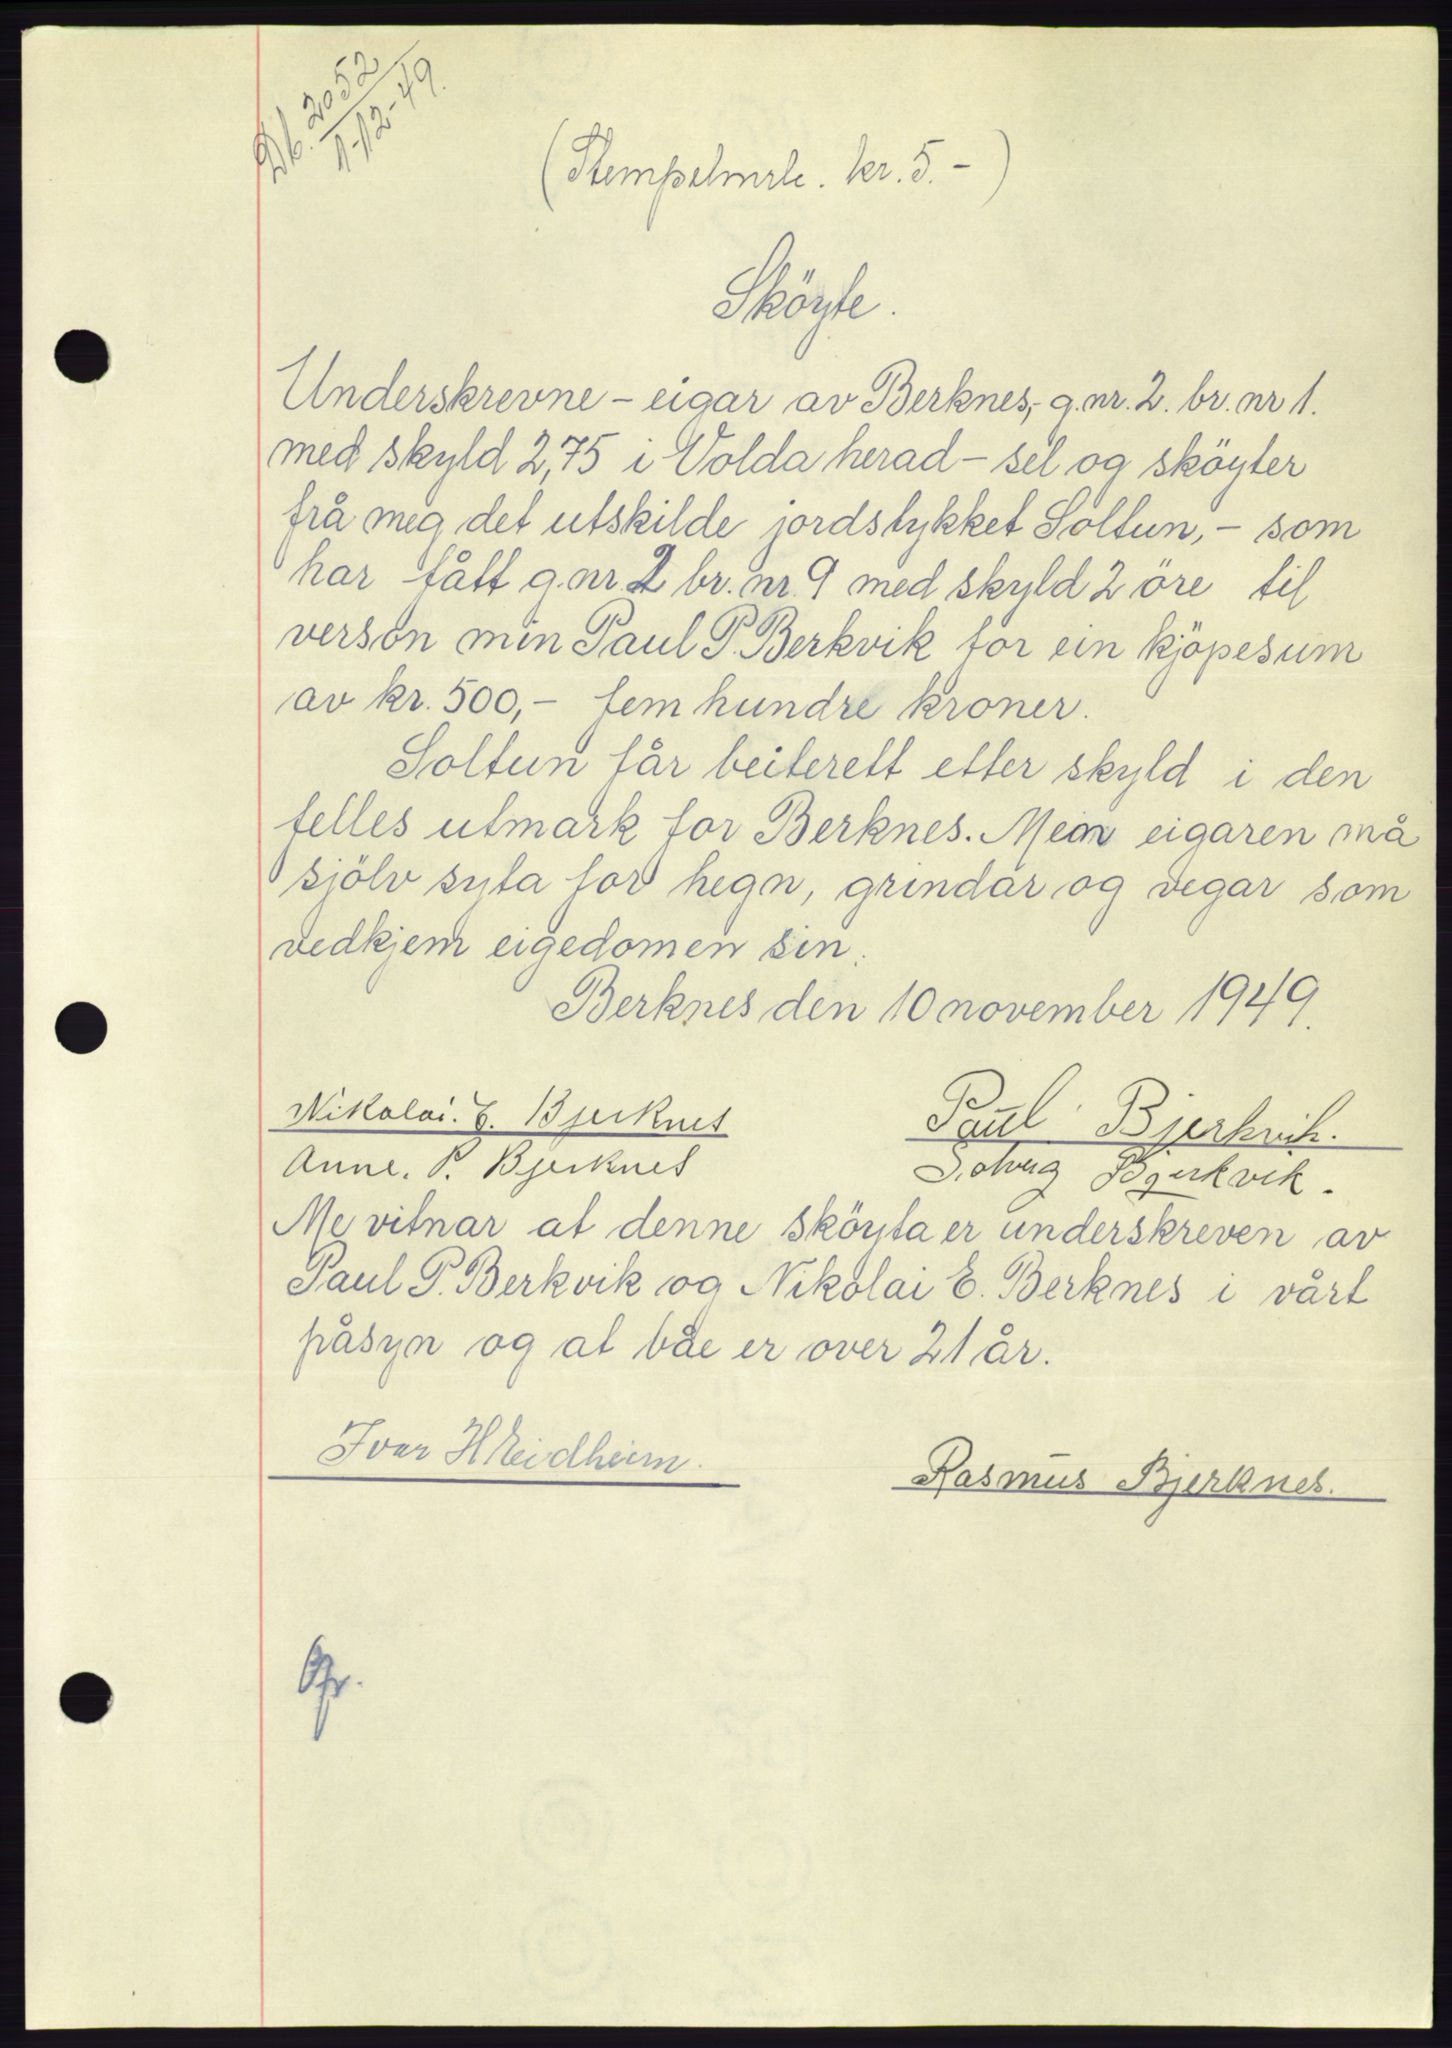 Db. 2052
1-12-49.
(Stempelmrk. kr. 5.-)
Sköyte.
Underskrevne - eigar av Berknes,- g.nr. 2. br. nr 1.
med skyld 2,75 i Volda herad - sel og sköyter
frå meg det utskilde jordstykket Soltun, - som
har fått g.nr 2 br. nr. 9 med skyld 2 öre til
versön min Paul P. Berkvik for ein kjöpesum
av kr. 500,- fem hundre kroner.
Soltun får beiterett etter skyld i den
felles utmark for Berknes. Mein eigaren må
sjölv syta for hegn, grindar og vegar som
vedkjem eigedomen sin.
Berknes den 10 november 1949.
Nikolai. E. Bjerknes Paul Bjerkvik.
Anne. P. Bjerknes Solveig Bjerkvik.
Me vitnar at denne sköyta er underskreven av
Paul P. Berkvik og Nikolai E. Berknes i vårt
påsyn og at båe er over 21 år.
Ivar H Eidheim. Rasmus Bjerknes.